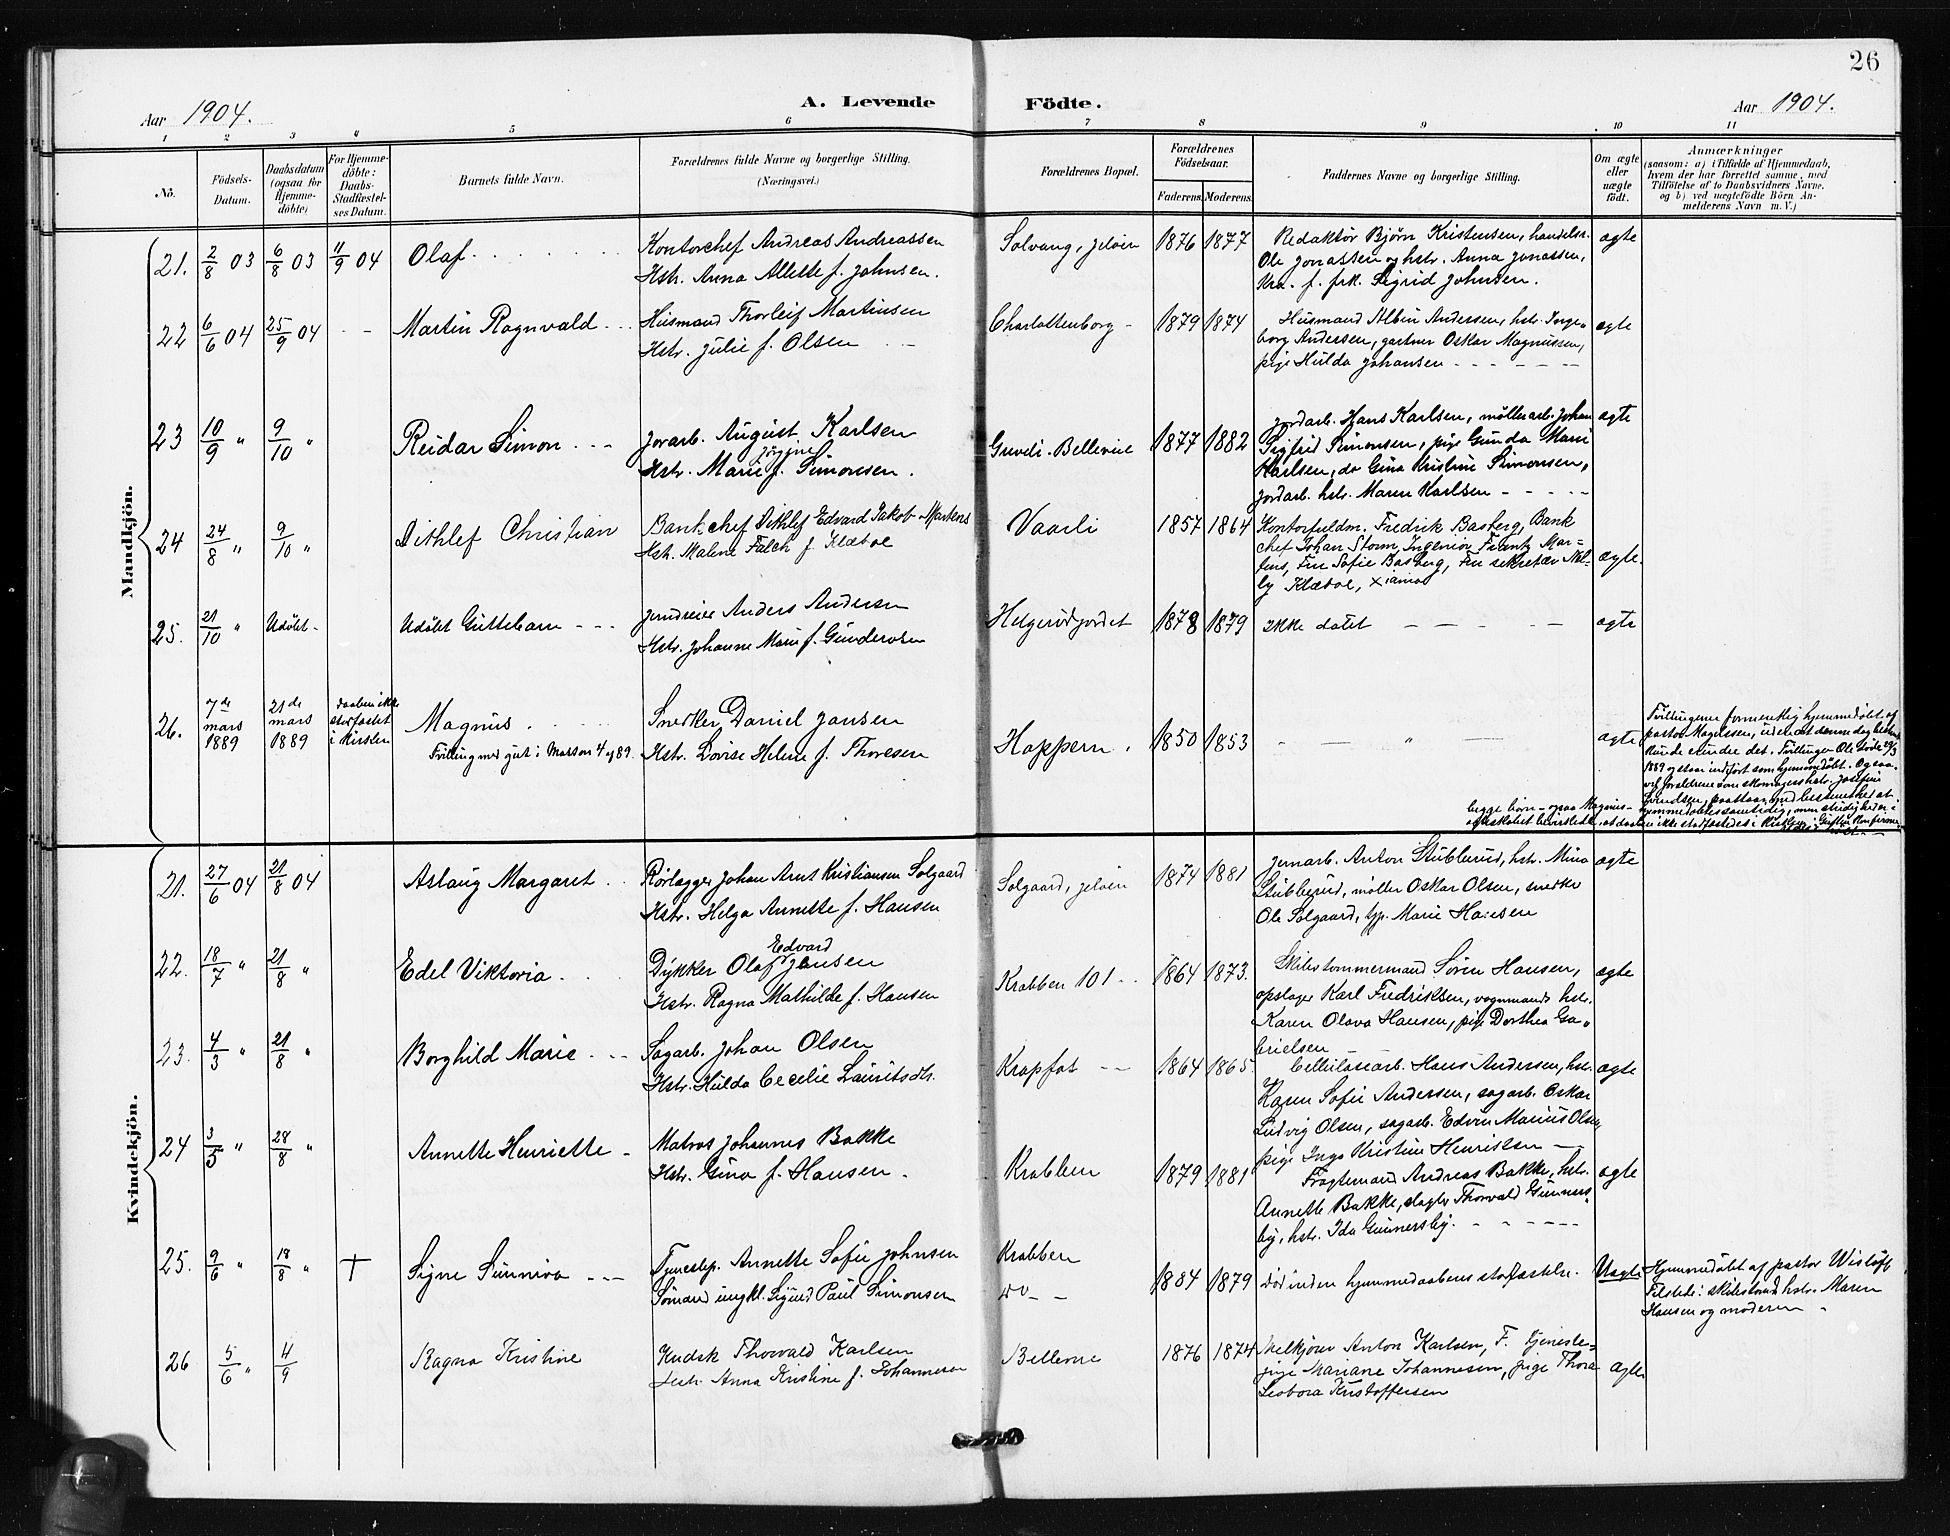 26
Aar 1904.
A. Levende Födte.
Aar 1904.
1 2 3 4 5 6 7 8 9 10 11
No.
Födsels-Datum.
Daabsdatum (ogsaa for Hjemme-döbte)
For Hjemme-döbte: Daabs-Stadfæstel-ses Datum.
Barnets fulde Navn.
Forældrenes fulde Navne og borgerlige Stilling.
(Næringsvei.)
Forældrenes Bopæl.
Forældrenes Födselsaar.
Faderens. Moderens.
Faddernes Navne og borgerlige Stilling.
Om ægte eller uægte födt.
Anmærkninger
(saasom: a) i Tilfælde af Hjemmedaab,
hvem der har forrettet samme, med
Tilföielse af to Daabsvidners Navne.
og b) ved uægtefödte Börn An-
melderens Navn m. V.)
Mandkjön.
21. 2/8 03 6/8 03 11/9 04 Olaf
Kontorchef Andreas Andreassen
Hstr. Anna Allette f. Johnsen.
Solvang, Jeløen 1876 1877
Redaktør Bjørn Kristensen, handelsr.
Ole Jonassen og hstr. Anna Jonassen,
Kra. f. frk. Sigrid Johnsen.
ægte
22 6/6 04 25/9 04 - - Martin Ragnvald
Husmand Thorleif Martinsen
Hstr. Julie f. Olsen
Charlottenborg - 1879 1874
Husmand Albin Andersen, hstr. Inge-
borg Andersen, gartner Oskar Magnussen,
pige Hulda Johansen
ægte
23 10/9 " 9/10 " Reidar Simon
Jorarb. August Karlsen
Jørgine
Hstr. Marie f. Simonsen.
Grindi. Bellevue 1877 1882
Jordarb. Hans Karlsen, møllerarb. Johan
Sigfrid Simonsen, pige Gunda Marie
Karlsen, do Gina Kristine Simonsen,
jordarb. hstr. Maren Karlsen
ægte
24 24/8 " 9/10 " Dithlef Christian
Bankchef Dithlef Edvard Jakob Martens
Hstr. Malene Falch f. Klæboe
Vaarli 1857 1864
Kontorfuldm. Fredrik Basberg, Bank
chef Johan Storm, Ingeniør Frantz Mar-
tens, Fru Sofie Basberg, Fru sekretær
Klæboe,
ægte.
25. 21/10 " Udøbt - Udøbt Guttebarn
Anders Andersen
Hstr. Johanne Marie f. Gundersen
Helgerødjordet 1878 1879
Ikke døbt
ægte
26. 7de mars 1889 21de mars 1889 daaben ikke stadfæstet i kirken
Magnus.
Tvilling med gut i Mossen 4 af 89.
Snedker Daniel Jansen
Hstr. Lovise Helene f. Thoresen
Hoppern. 1850 1853 - - " - -
ægte
Tvillingerne formentlig hjemmedøbt af
pastor Magelssen, uden at denne dog bestemt
kunde erindre det. Tvillingen Ole døde
1889 og staar indført som hjemmedøbt. Ogsaa
Kvindekjön.
21. 27/6 04 21/8 04 Aslaug Margaret
Rørlægger Johan Arnt Kristiansen Solgaard
Hstr. Helga Annette f. Hansen
Solgaard, Jeløen 1874 1881
Jernarb. Anton Stubberud, hstr. Mina
Stubberud, møller Oskar Olsen, snedker
Ole Solgaard, tjp. Marie Hansen
ægte
22. 18/7 " 21/8 " Edel Viktoria
Edvard
Dykker Olaf Jensen
Hstr. Ragna Mathilde f. Hansen
Krabben 101 1864 1873.
Skibstømmermand Søren Hansen,
opslager Karl Fredriksen, vognmands hstr.
Karen Olava Hansen, pige Dorthea Ga-
brielsen
ægte
23. 4/3 " 21/8 " Borghild Marie
Sagarb. Johan Olsen
Hstr. Hulda Cecilie Lauritsdtr.
Krapfos 1864 1865
Cellulosearb. Hans Andersen, hstr.
Karen Sofie Andersen, sagarb. Oskar
Ludvig Olsen, sagarb. Edvin Marius Olsen,
pige Inga Kristine Henriksen
ægte
24 3/5 " 28/8 " Annette Henriette
Matros Johannes Bakke
Hstr. Gina f. Hansen.
Krabben 1879 1881
Fragtemand Andreas Bakke, hstr.
Annette Bakke, slagter Thorvald Gunners-
by, hstr. Ida Gunnersby.
ægte
25. 9/6 " 18/8 " + Signe Sunniva
Tjenestep. Annette Sofie Johnsen
Sømand ungkl. Sigurd Paul Simonsen
Krabben
do 1884 1879
Død inden hjemmedaabens stadfæstelse.
Uægte
Hjemmedøbt af pastor Wisløff
Tilstede: skibstømd. hstr. Maren
Hansen og moderen
26 5/6 " 4/9 Ragna Kristine
Kudsk Thorvald Karlsen
Hstr. Anna Kristine f. Johannesen
Bellevue 1876 1874
Melkjører Anton Karlsen, F. tjeneste-
pige Mariane Johannesen, pige Thora
Leobora Kristoffersen
ægte